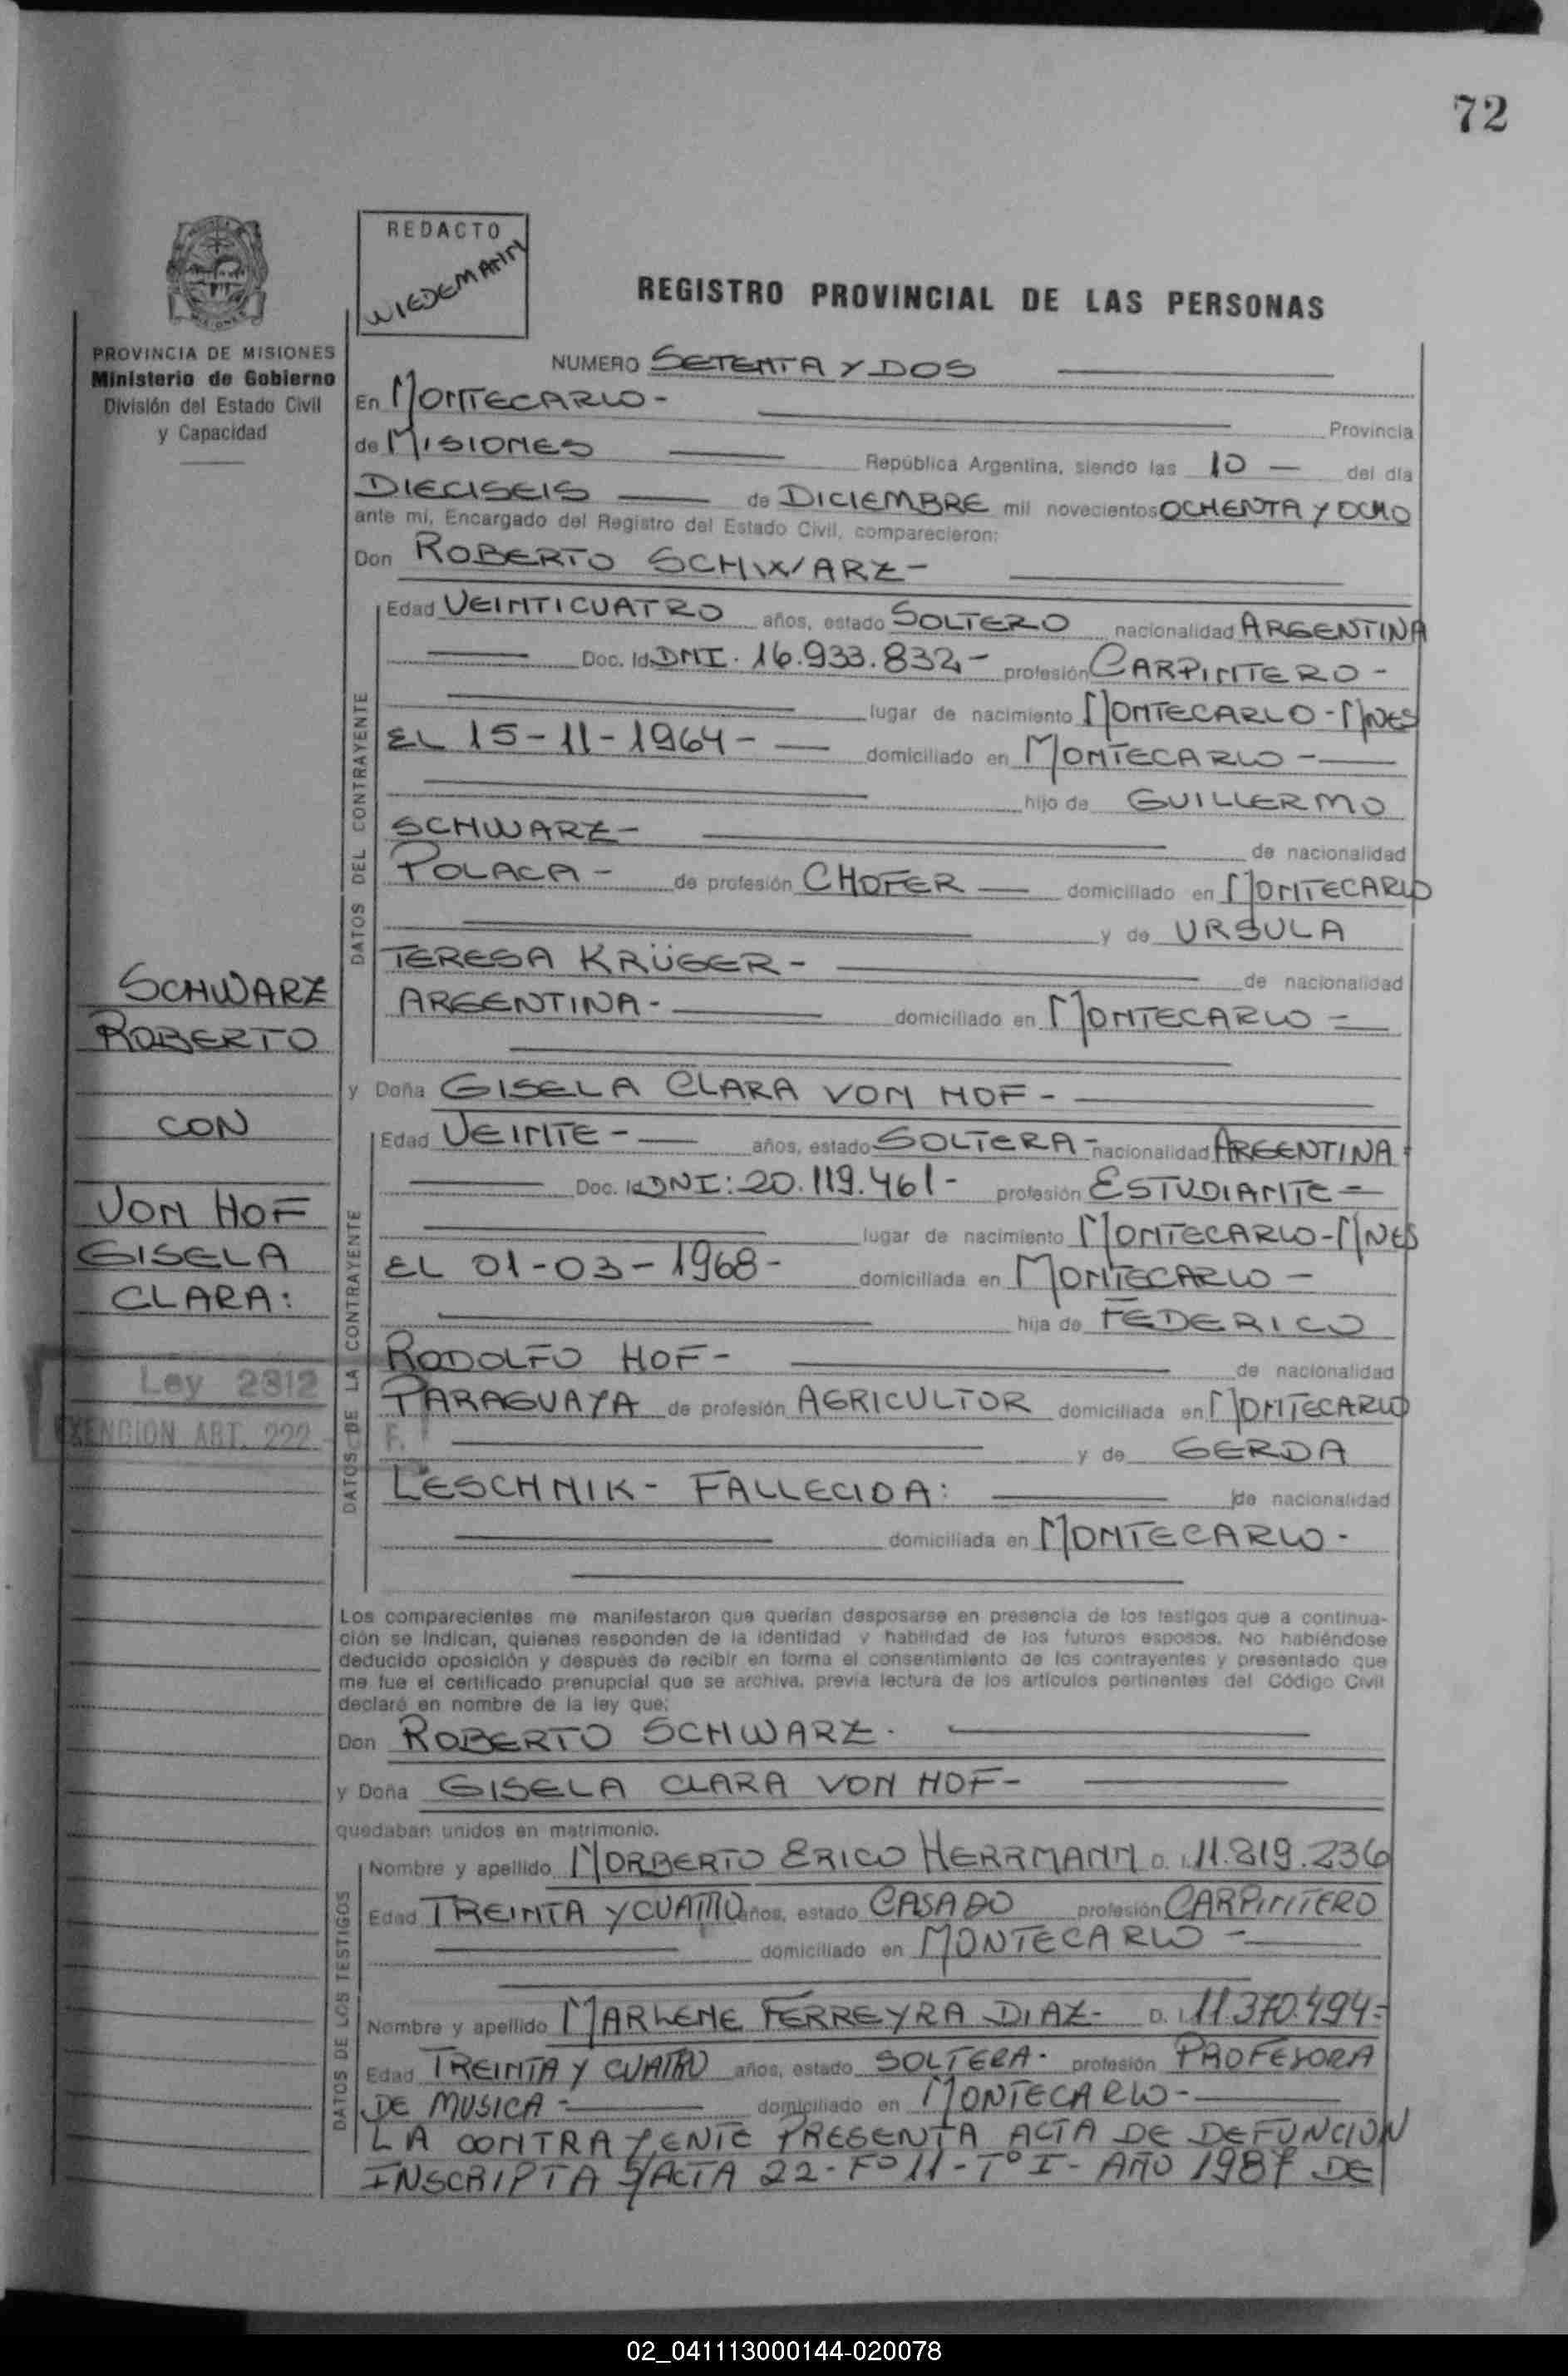 72
REDACTO
WIEDEMANN
REGISTRO PROVINCIAL DE LAS PERSONAS
PROVINCIA DE MISIONES
Ministerio de Gobierno
División del Estado Civil
y Capacidad
NUMERO SETENTA Y DOS
En MONTECARLO -
Provincia
de MISIONES República Argentina, siendo las 10 — del día
DIECISEIS — de DICIEMBRE mil novecientos OCHENTA Y OCHO
ante mí, Encargado del Registro del Estado Civil, comparecieron:
Don ROBERTO SCHWARZ -
DATOS DEL CONTRAYENTE
Edad VEINTICUATRO años, estado SOLTERO nacionalidad ARGENTINA
Doc. Id. DNI. 16.933.832 - profesión CARPINTERO -
lugar de nacimiento MONTECARLO - MNES
EL 15-11-1964 - domiciliado en MONTECARLO -
hijo de GUILLERMO
SCHWARZ - de nacionalidad
POLACA - de profesión CHOFER — domiciliado en MONTECARLO
y de URSULA
TERESA KRÜGER - de nacionalidad
ARGENTINA - domiciliado en MONTECARLO -
SCHWARZ
ROBERTO
CON
VON HOF
GISELA
CLARA:
Ley 2312
EXENCION ART. 222
y Doña GISELA CLARA VON HOF -
DATOS DE LA CONTRAYENTE
Edad VEINTE - años, estado SOLTERA - nacionalidad ARGENTINA
Doc. Id DNI: 20.119.461 - profesión ESTUDIANTE -
lugar de nacimiento MONTECARLO - MNES
EL 01-03-1968 - domiciliada en MONTECARLO -
hija de FEDERICO
RODOLFO HOF - de nacionalidad
PARAGUAYA de profesión AGRICULTOR domiciliada en MONTECARLO
y de GERDA
LESCHNIK - FALLECIDA: de nacionalidad
domiciliada en MONTECARLO -
Los comparecientes me manifestaron que querían desposarse en presencia de los testigos que a continua-
ción se indican, quienes responden de la identidad y habilidad de los futuros esposos. No habiéndose
deducido oposición y después de recibir en forma el consentimiento de los contrayentes y presentado que
me fue el certificado prenupcial que se archiva, previa lectura de los artículos pertinentes del Código Civil
declaré en nombre de la ley que:
Don ROBERTO SCHWARZ.
y Doña GISELA CLARA VON HOF -
quedaban unidos en matrimonio.
DATOS DE LOS TESTIGOS
Nombre y apellido NORBERTO ERICO HERRMANN D. I. 11.819.236
Edad TREINTA Y CUATRO años, estado CASADO profesión CARPINTERO
domiciliado en MONTECARLO -
Nombre y apellido MARLENE FERREYRA DIAZ - D. I. 11.370.494 -
Edad TREINTA Y CUATRO años, estado SOLTERA. profesión PROFESORA
DE MUSICA - domiciliado en MONTECARLO -
LA CONTRAYENTE PRESENTA ACTA DE DEFUNCION
INSCRIPTA S/ACTA 22 - Fº 11 - Tº I - AÑO 1987 DE
02_041113000144-020078